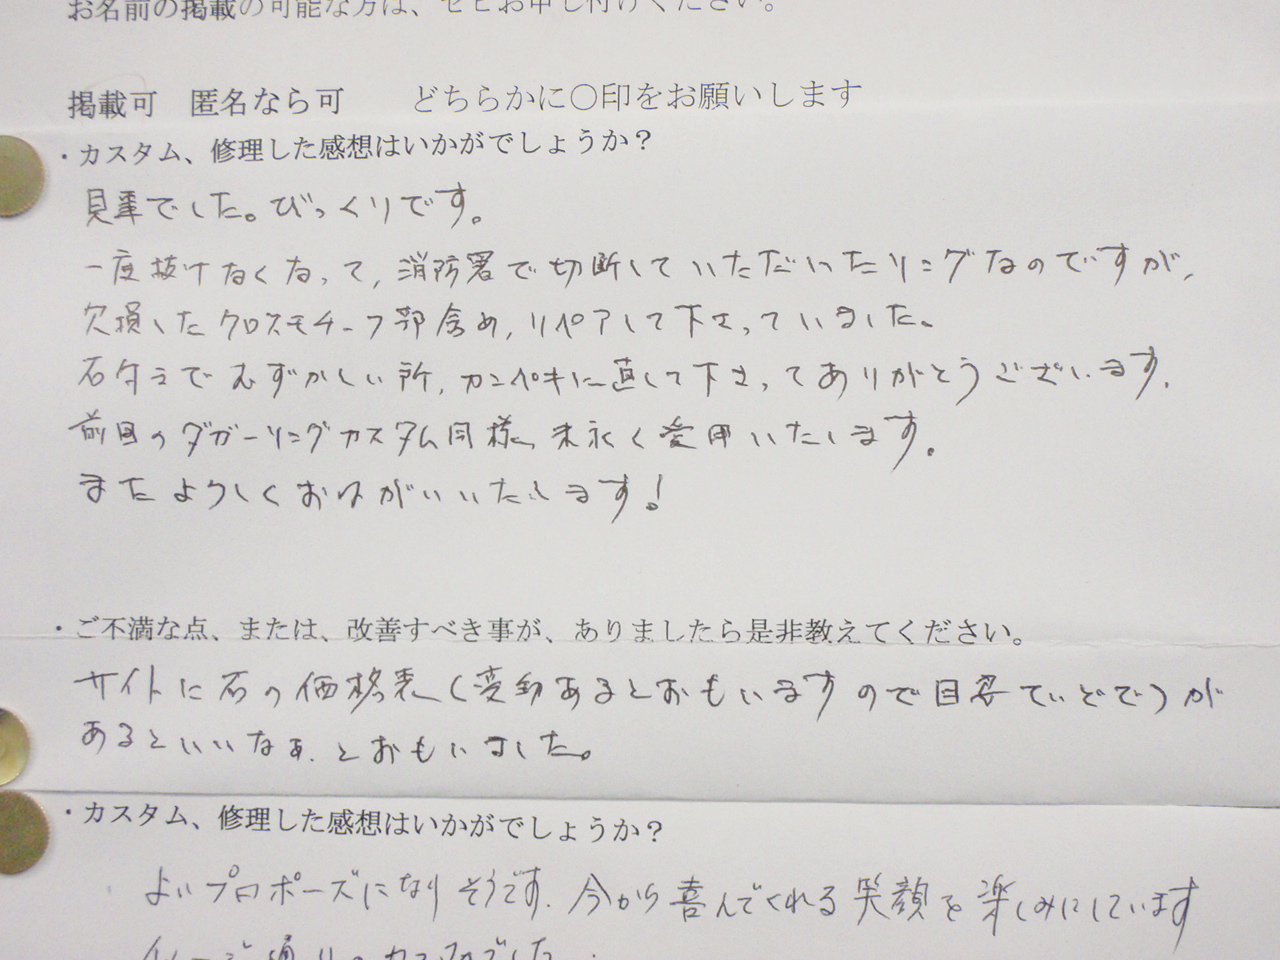 お名前の掲載の可能な方は、ぜひお申し付けください。
掲載可　匿名なら可　　どちらかに〇印をお願いします
・カスタム、修理した感想はいかがでしょうか？
見事でした。びっくりです。
一度抜けなくなって,消防署で切断していただいたリングなのですが,
欠損したクロスモチーフ部含め,リペアして下さっていました。
石付きでむずかしい所,カンペキに直して下さってありがとうございます.
前回のダガーリングカスタム同様、末永く愛用いたします。
またよろしくおねがいいたします!
・ご不満な点、または、改善すべき事が、ありましたら是非教えてください。
サイトに石の価格表(変動あるとおもいますので目安ていどで)が
あるといいなぁ.とおもいました。
・カスタム、修理した感想はいかがでしょうか？
よいプロポーズになりそうです.今から喜んでくれる笑顔を楽しみにしています